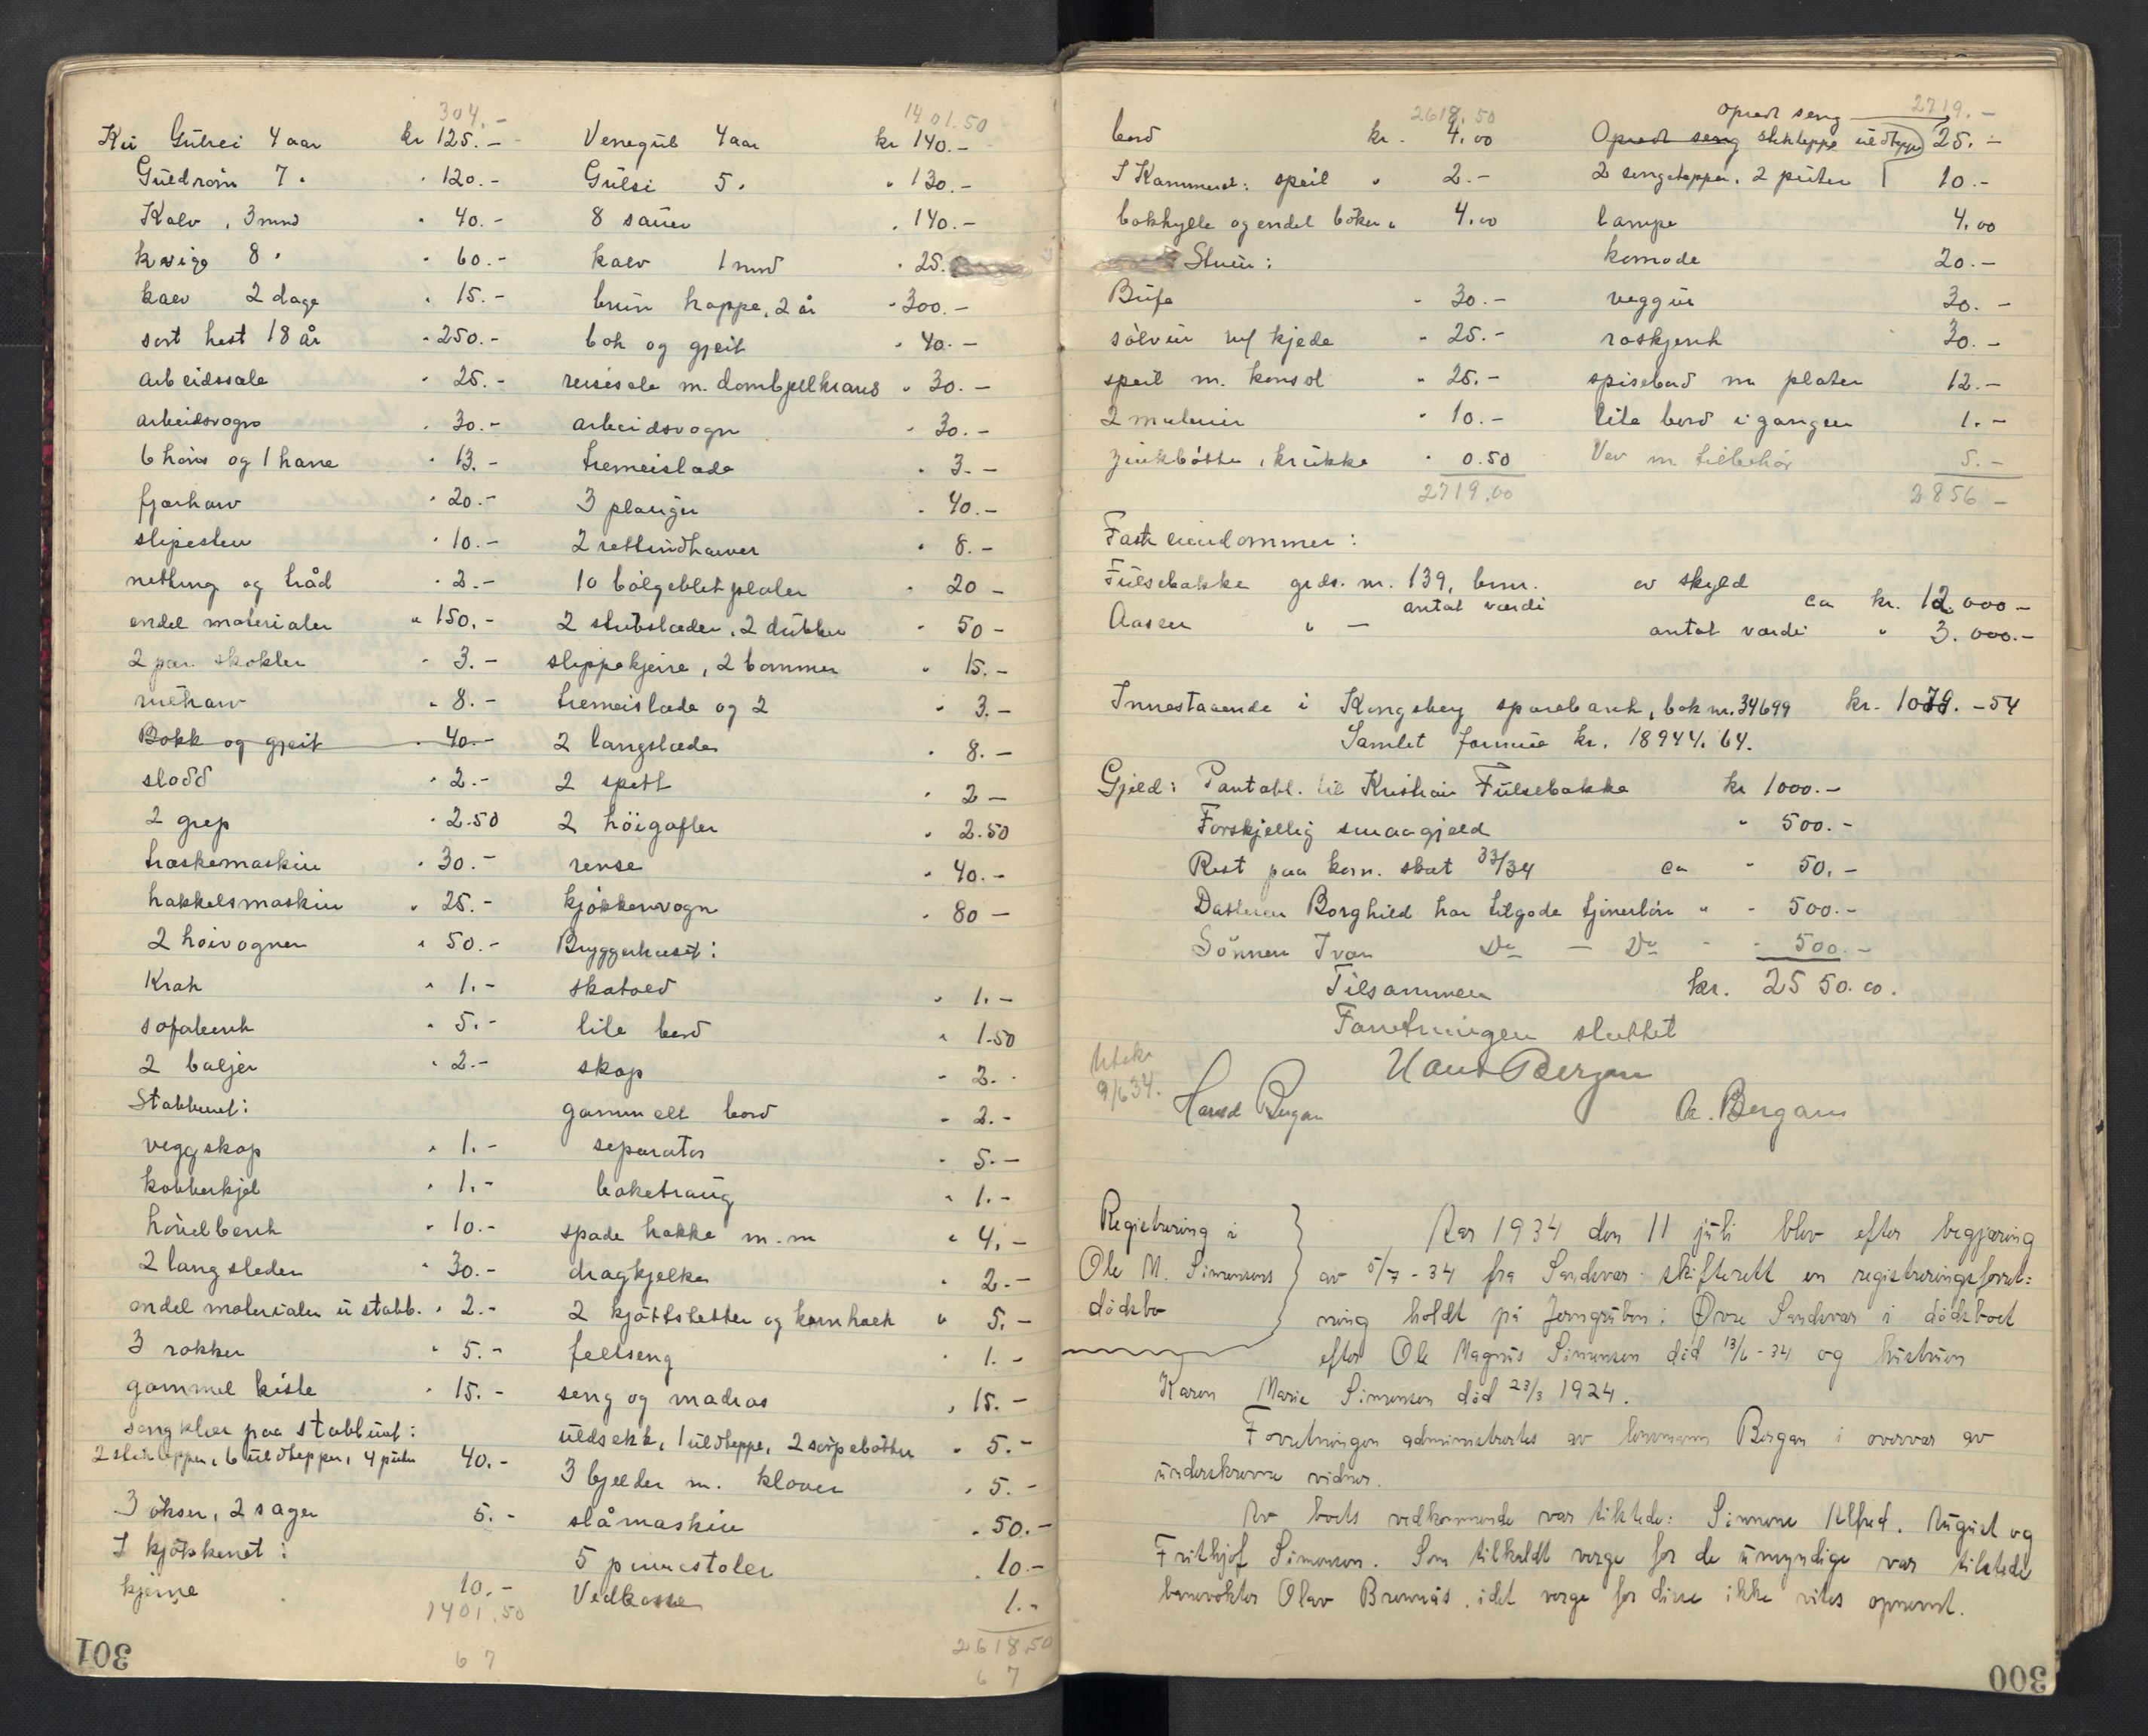 304.-
Ku Gulrei 4 aar kr 125.-
Guldrøin 7 " " 120.-
Kalv, 3 mnd " 40.-
kvige 8 " " 60.-
kalv 2 dage " 15.-
sort hest 18 år " 250.-
arbeidssæle " 25.-
arbeidsvogn " 30.-
6 høns og 1 hane " 13.-
fjærharv " 20.-
slipesten " 10.-
netting og tråd " 2.-
endel materialer " 150.-
2 par skokler " 3.-
rueharv " 8.-
Bokk og gjeit " 40.-
slodd " 2.-
2 grep " 2.50
træskemaskin " 30.-
hakkelsmaskin " 25.-
2 høivogner " 50.-
Krak " 1.-
sofabenk " 5.-
2 baljer " 2.-
Stabburet:
veggskap " 1.-
kobberkjel " 1.-
høvelbenk " 10.-
2 langsleder " 30.-
endel materialer u stabb. " 2.-
3 rokker " 5.-
gammel kiste " 15.-
sengklær paa stabburet:
2 slektepper, 6 uldtepper, 4 puter 40.-
3 økser, 2 sager 5.-
I kjøkkenet:
kjerne 10.-
1401.50
6 7
301
1401.50
Venegul 4 aar kr 140.-
Gulsi 5 " " 130.-
8 sauer " 140.-
kalv 1 mnd " 25.
brun hoppe, 2 år " 300.-
bok og gjeit " 40.-
reisesele m. dombjelkrans " 30.-
arbeidsvogn " 30.-
tremeislæde " 3.-
3 plauger " 40.-
2 rettindharver " 8.-
10 bølgeblekplater " 20 -
2 stubslæder, 2 dubbler " 50 -
slippekjerre, 2 bommer " 15.-
tremeislæde og 2 " 3.-
2 langslæder " 8.-
2 spett " 2 -
2 høigafler " 2.50
rense " 40.-
kjøkkenvogn " 80 -
Bryggerhuset:
skatold " 1.-
lite bord " 1.50
skap " 2.-
gammelt bord " 2.-
separator " 5.-
baketraug " 1.-
spade hakke m.m " 4.-
dragkjelke " 2.-
2 kjøttstetter og kornhack " 5.-
feltseng " 1.-
seng og madras " 15.-
uldsekk, 1 uldteppe, 2 søpebøtter " 5.-
3 bjelder m. klaver " 5.-
slåmaskin " 50.-
5 pinnestoler " 10.-
Vedkasse 1.-
2618.50
6 7
2618.50
bord kr. 4.00
I Kammeret: speil " 2.-
bokhylle og endel bøker " 4.00
Stuen:
Bufe " 30.-
sølvur m/ kjede " 25.-
speil m. konsol " 25.-
2 malerier " 10.-
zinkbøtte, krukke " 0.50
2719.00
opredt seng 2719.-
Opredt seng slekteppe uldteppe 25.-
2 sengetepper, 2 puter 10.-
lampe 4.00
komode 20.-
veggur 30.-
roskjenk 30.-
spisebord m plater 12.-
lite bord i gangen 1.-
Vev m. tilbehør 5.-
2856 -
Faste eiendommer:
Fulsebakke grds. nr. 139, bnr. av skyld
antat værdi ca kr. 12.000 -
Aasen " - antat værdi " 3.000.-
Innestaaende i Kongsberg sparebank, bok nr. 34699 kr. 1079.-54
Samlet formue kr. 18944.64.
Gjeld: Pantobl. til Kristian Fulsebakke kr 1000.-
Forskjellig smaagjeld " 500.-
Rest paa kom. skat 33/34 ca " 50.-
Datteren Borghild har tilgode tjenerløn " " 500.-
Sønnen Ivar Do - Do " " 500.-
Tilsammen kr. 2550.00.
Forretningen sluttet
Utskr. 9/6 34.
Hans Bergan
Harald Bergan A. Bergan
Registrering i
Ole M. Simensens
dødsbo
Aar 1934 den 11 juli blev efter begjæring
av 5/7 - 34 fra Sandsvær skifterett en registreringsforret=
ning holdt på Jerngruben i Øvre Sandsvær i dødsboet
efter Ole Magnus Simensen død 13/6 - 34 og hustruen
Karen Marie Simensen død 23/3 1924.
Forretningen administrertes av lensmann Bergan i overvær av
underskrevne vidner.
Av boets vedkommende var tilstede: Sønnene Alfred, August og
Frithjof Simensen. Som tilkaldt verge for de umyndige var tilstede
banevokter Olav Brennås, idet verge for disse ikke vites opnevnt.
300